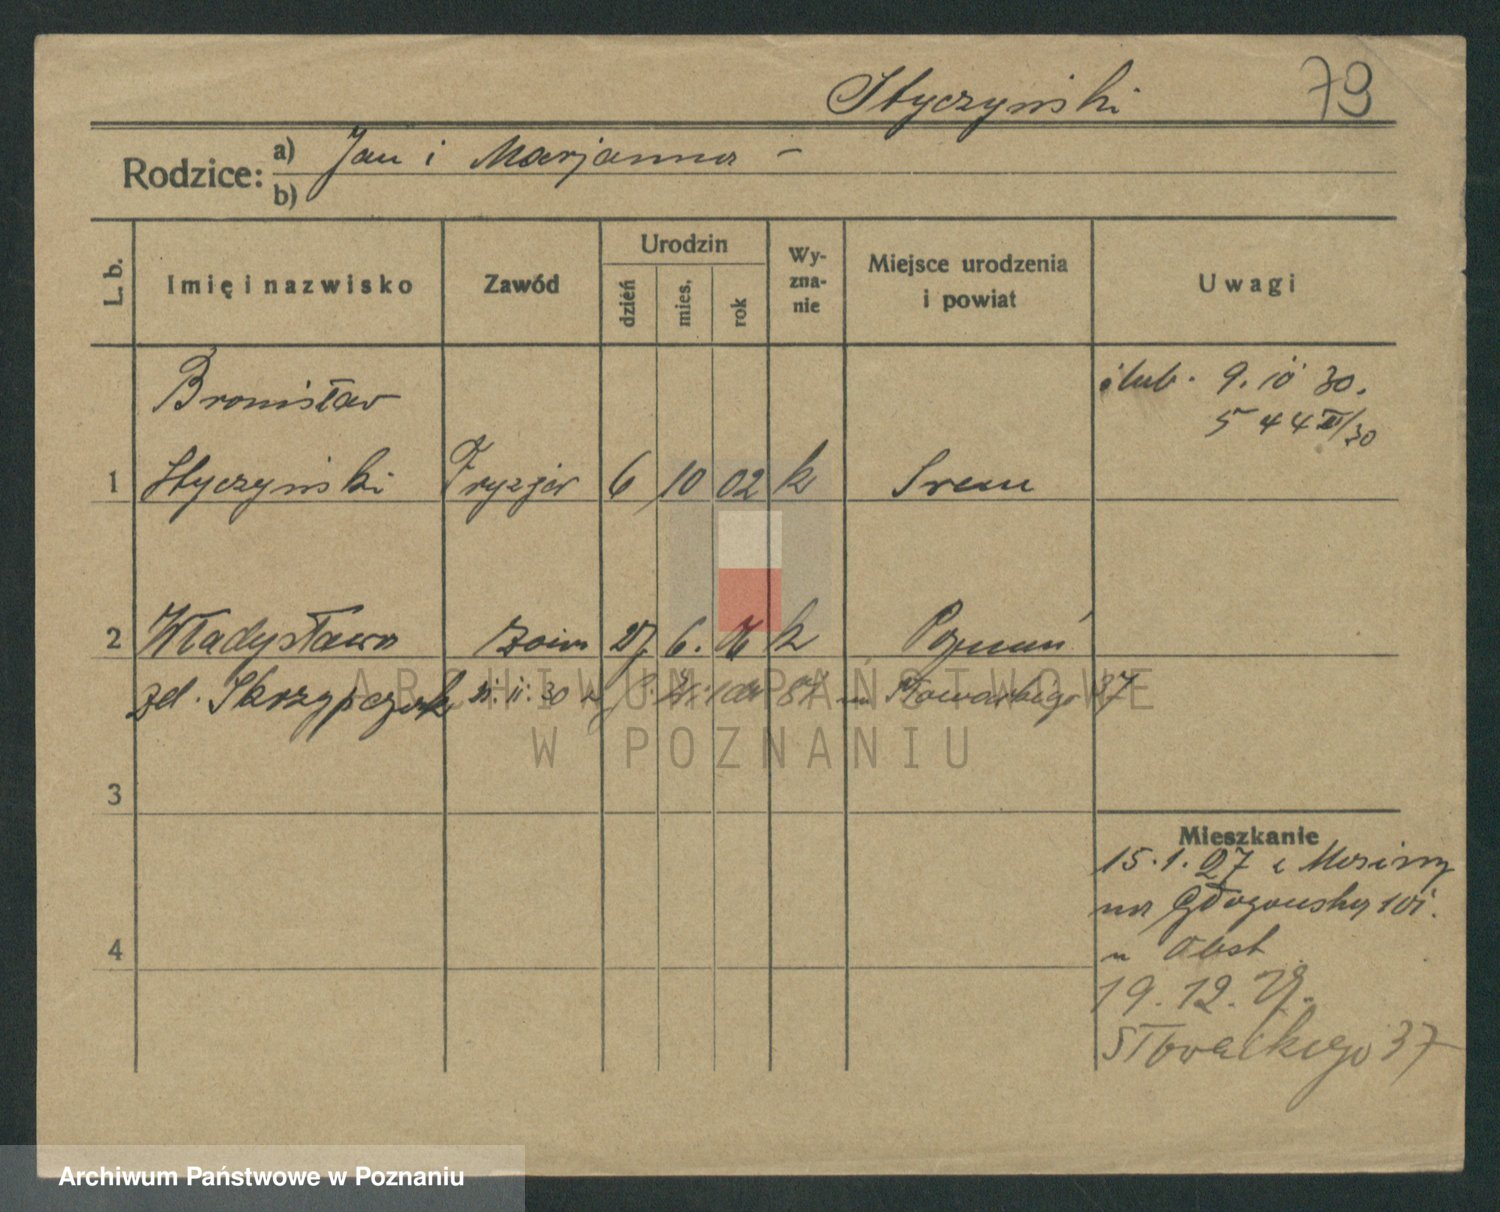 Styczyński 79
Rodzice: a) Jan i Marjanna -
b)
L. b. Imię i nazwisko Zawód Urodzin dzień mies. rok Wyznanie Miejsce urodzenia i powiat Uwagi
Bronisław ślub. 9. 10 30.
544 III/30
1 Styczyński Fryzjer 6 10 02 k Srem
2 Władysława 27. 6. k Poznań
zd. Skrzypczak 21. 11. 30 Słowackiego 37
3
Mieszkanie
15. 1. 27 z Mosiny
na Głogowska 101.
4
u Obst
19. 12. 29.
Słowackiego 37
ARCHIWUM PAŃSTWOWE
W POZNANIU
Archiwum Państwowe w Poznaniu